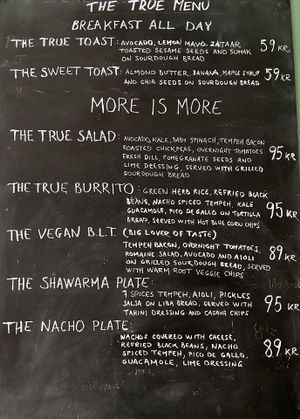 THE TRUE MENU
BREAKFAST ALL DAY
THE TRUE TOAST: AVOCADO, LEMON MAYO, ZAATAR,
TOASTED SESAME SEEDS AND SUMAK
ON SOURDOUGH BREAD 59 KR.
THE SWEET TOAST: ALMOND BUTTER, BANANA, MAPLE SYRUP
AND CHIA SEEDS ON SOURDOUGH BREAD 59 KR.
MORE IS MORE
THE TRUE SALAD: AVOCADO, KALE, BABY SPINACH, TEMPEH BACON
ROASTED CHICKPEAS, OVERNIGHT TOMATOES
FRESH DILL, POMEGRANATE SEEDS AND
LIME DRESSING, SERVED WITH GRILLED
SOURDOUGH BREAD 95 KR.
THE TRUE BURRITO: GREEN HERB RICE, REFRIED BLACK
BEANS, NACHO SPICED TEMPEH, KALE
GUACAMOLE, PICO DE GALLO ON TORTILLA
BREAD, SERVED WITH HOT BLUE CORN CHIPS 95 KR.
THE VEGAN B.L.T. (BIG LOVER OF TASTE)
TEMPEH BACON, OVERNIGHT TOMATOES,
ROMAINE SALAD, AVOCADO AND AIOLI
ON GRILLED SOURDOUGH BREAD, SERVED
WITH WARM ROOT VEGGIE CHIPS 89 KR.
THE SHAWARMA PLATE:
7 SPICES TEMPEH, AIOLI, PICKLES
SALSA ON LIBA BREAD, SERVED WITH
TAHINI DRESSING AND CASAVA CHIPS 95 KR.
THE NACHO PLATE:
NACHOS COVERED WITH CHEESE,
REFRIED BLACK BEANS, NACHO
SPICED TEMPEH, PICO DE GALLO,
GUACAMOLE, LIME DRESSING 89 KR.